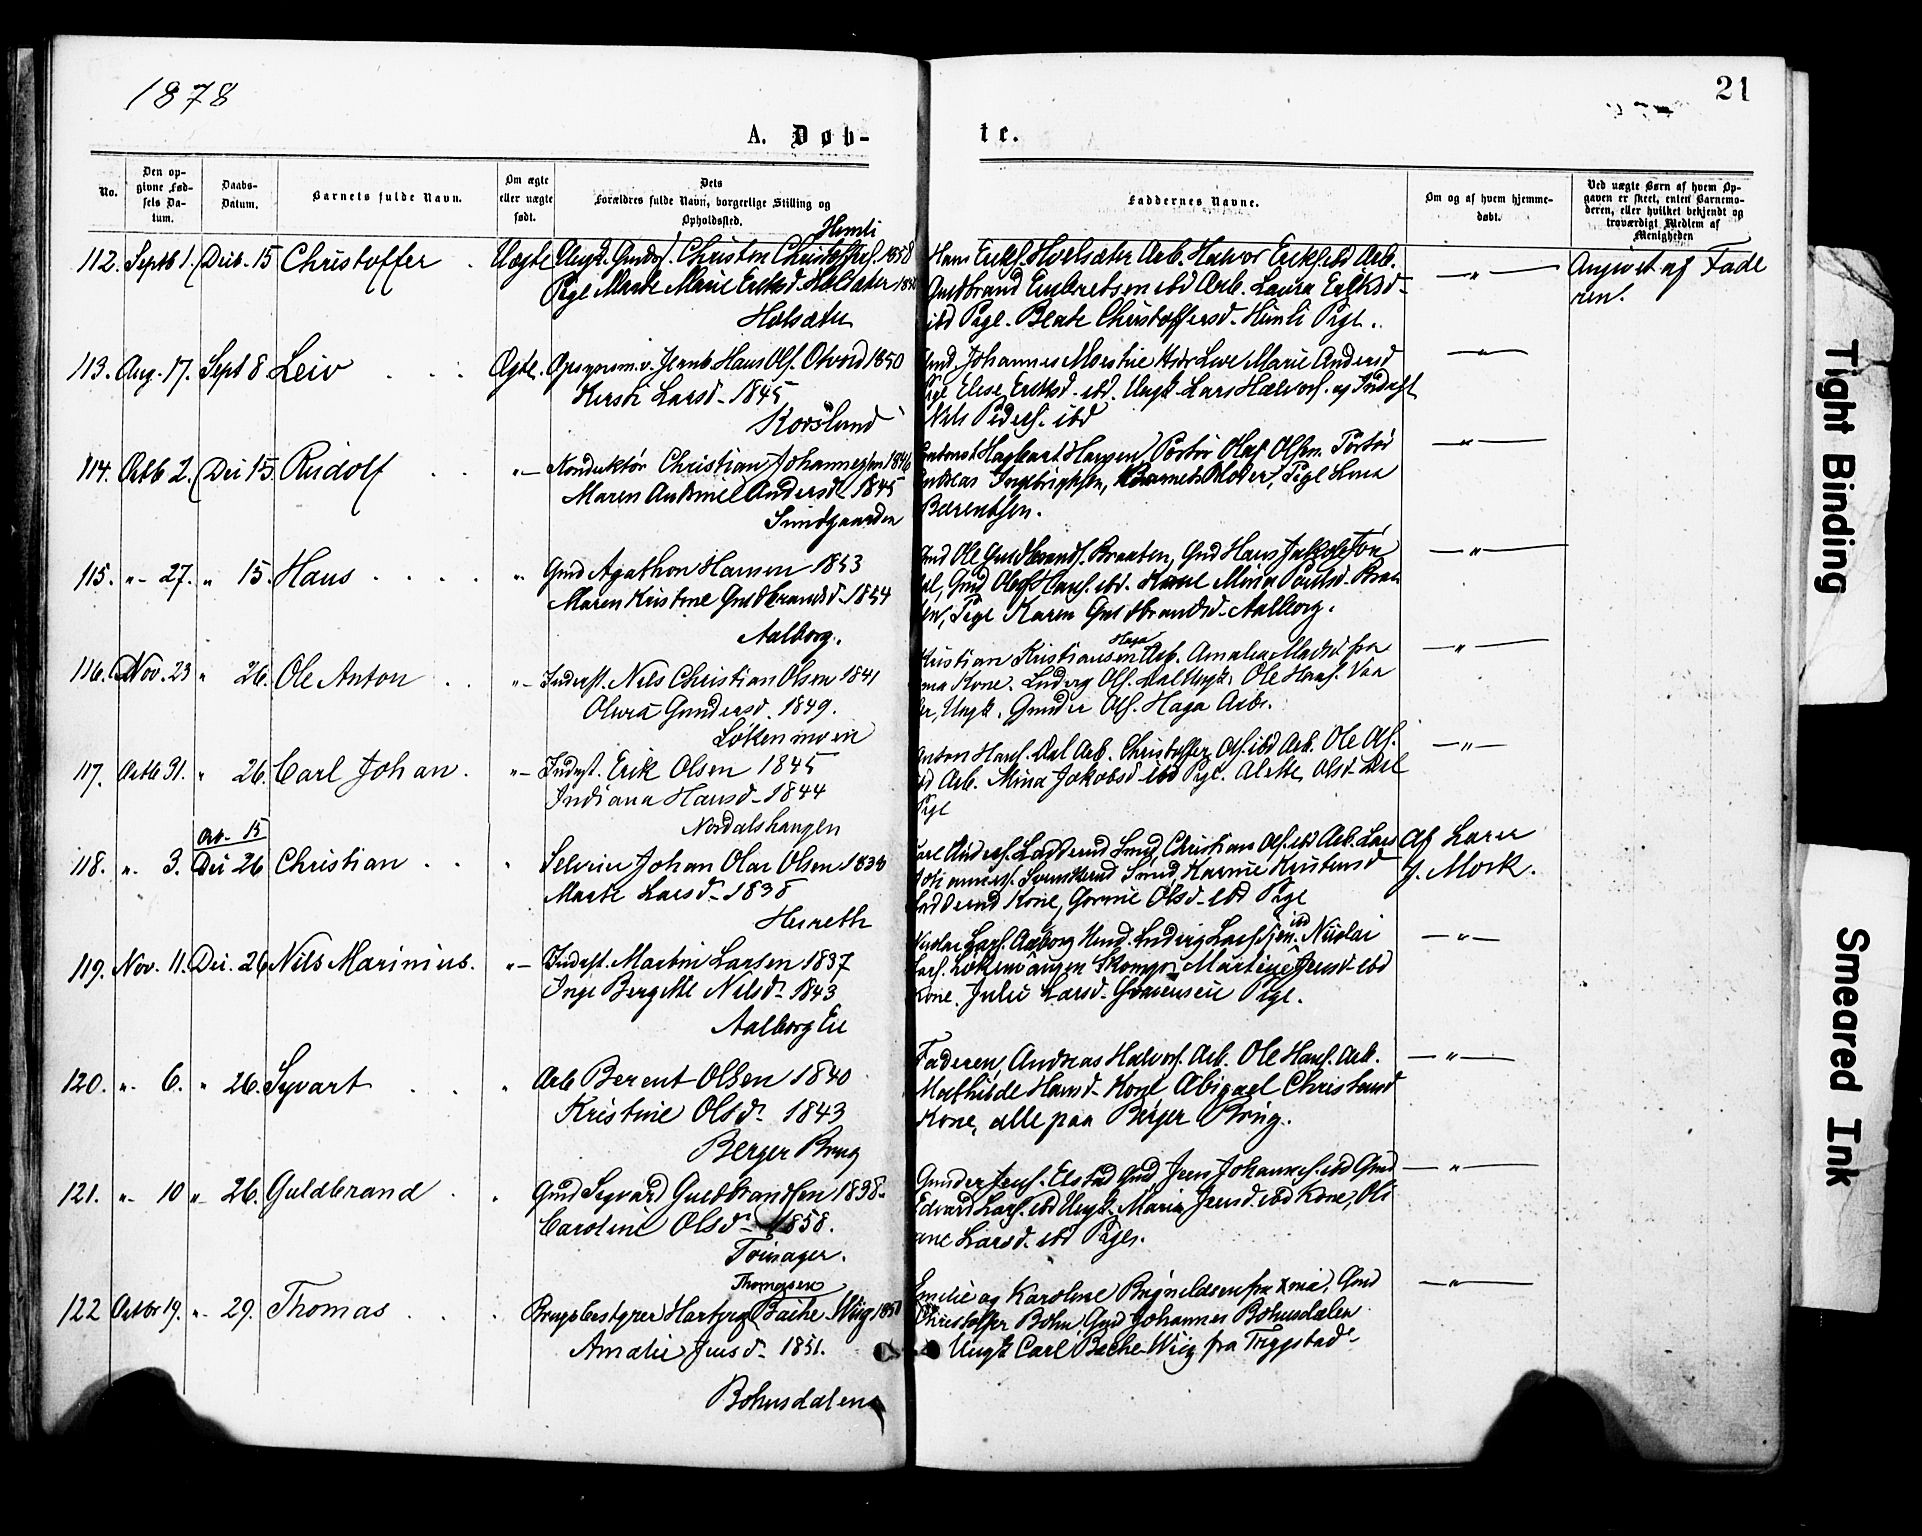 1878
21
A. Døb-
te.
No.
Den op-
givne Fød-
sels Da-
tum.
Daabs-
Datum.
Barnets fulde Navn.
Om ægte
eller uægte
født.
Dets
Forældres fulde Navn, borgerlige Stilling og
Opholdssted.
Faddernes Navne.
Om og af hvem hjemme-
døbt.
Ved uægte Børn af hvem Op-
gaven er skeet, enten Barnemo-
deren, eller hvilket bekjendt og
troværdigt Medlem af
Menigheden
Himli
112. Septb 1. Deib. 15 Christoffer Uægte Ungk. Christen Christoffers. 1858
Pige Marte Marie Eriksd. Holsæter
Holsæter
Hans Eriks. Holsæter Arb. Halvor Eriks. ibd Arb.
Guldbrand Enbretsen ibd Arb. Laura Eriksd-
ibd Pige. Beate Christoffersd. Himli Pige.
— " —
Angivet af Fade
ren.
113. Aug. 17. Sept 8 Leiv Ægte. Opsynsm. v. Jernb. Hans Ols. 1850
Kirsti Larsd- 1845
Korslund
Johannes Marie Andersd
Pige Elise Eriksd. ibd. Ungk. Lars Halvors. og Inderst
Nils Peders. ibd
— " —
114. Octb 2. Dei 15. Rudolf " — Konduktør Christian Johannesen 1846
Maren Andersd. 1845
Sundgaarden
Hagbart Hansen Portør Olaf Olsen. Portør
Andreas Ingebrigtsen, Barnets Moder, Pige Lina
Bærentsen.
— " —
115. " — 27. " 15. Hans " Gmd Agathon Hansen 1853
Maren Kristine Guldbrandsd. 1854
Aalborg.
Gmd Ole Guldbrands. Braaten, Gmd Hans
Gmd Olaf Hans. ibd. Kone Mina Paulsd. Braa
ten, Pige Karen Guldbrandsd. Aalborg.
— " —
116. Nov. 23 " 26. Ole Anton " — Inderst. Nils Christian Olsen 1841
Olivia Gundersd. 1849.
Løkenmoen
Haga
Kristian Kristiansen Arb. Amalia fra
Kone. Ludvig Ols. Dal Ungk. Ole Hans. Vaa
ler, Ungk. Gunder Ols. Haga Arb.
— " —
117. Octb 31. " 26. Carl Johan. " — Inderst. Erik Olsen 1845
Indiana Hansd- 1844
Nordalshaugen
Anton Hans. Dal Arb. Christoffer Ols. ibd Arb. Ole Ols.
ibd Arb. Mina Jakobsd ibd Pige. Alette Olsd Dal
Pige
— " —
15
118. " 3. Dei 26 Christian " Selveier Johan Olai Olsen
Marte Larsd- 1838
Hereth
Carl Anders. Ladderud Smed, Christian Ols. ibd Arb. Lars
Johannes. Smed, Karine Kristensd
Ladderud Kone, Gorine Olsd- ibd Pige
Af Lærer
J. Mork.
119. Nov. 11. Dei. 26 Nils Marinius. " — Inderst. Martin Larsen 1837
Inge Bergitte Nilsd- 1843
Aalborg Eie
Nicolai Lars. Aalborg Ludvig Lars. ibd Nicolai
Lars. Skomgr. Martine Jensd- ibd
Kone. Julie Larsd- Pige.
— " —
120. " 6. " 26. Syvart " Arb Berent Olsen 1840
Kristine Olsd- 1843
Berger Brug
Faderen, Andreas Halvors. Arb. Ole Hans. Arb.
Mathilde Hansd- Kone Abigael Christiansd
Kone, alle paa Berger Brug.
— " —
121. " 10 " 26. Guldbrand " Gmd Syvard Guldbrandsen 1838.
Caroline Olsd- 1858.
Toinager.
Gunder Jens. Elstad Gmd, Jens Johannes. ibd Gmd
Edvard Lars. ibd Ungk. Maria Jensd ibd Kone, Oli
ane Larsd. ibd Pige.
— " —
Thomassen
122 Octbr 19. " 29. Thomas " Brugsbestyrer Bache-Wiig
Amalie Jensd- 1851.
Bohusdalen
Emilie og Karoline Brynildsen fra Xnia, Gmd
Christoffer Bohn Gmd Johannes Bohusdalen
Ungk Carl Bache-Wiig fra Trygstad
— " —
Tight Binding
Smeared Ink